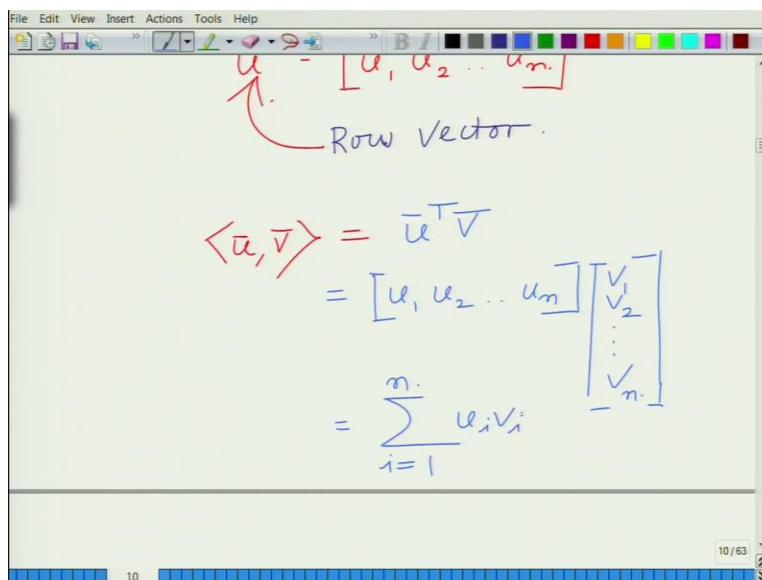 File Edit View Insert Actions Tools Help
B I
ū = [u₁ u₂ .. uₙ.]
Row Vector.
<ū, v̄> = ūᵀ v̄
= [u₁ u₂ .. uₙ] [v₁ v₂ ⋮ vₙ.]
= ∑ᵢ₌₁ⁿ· uᵢvᵢ
10/63
10